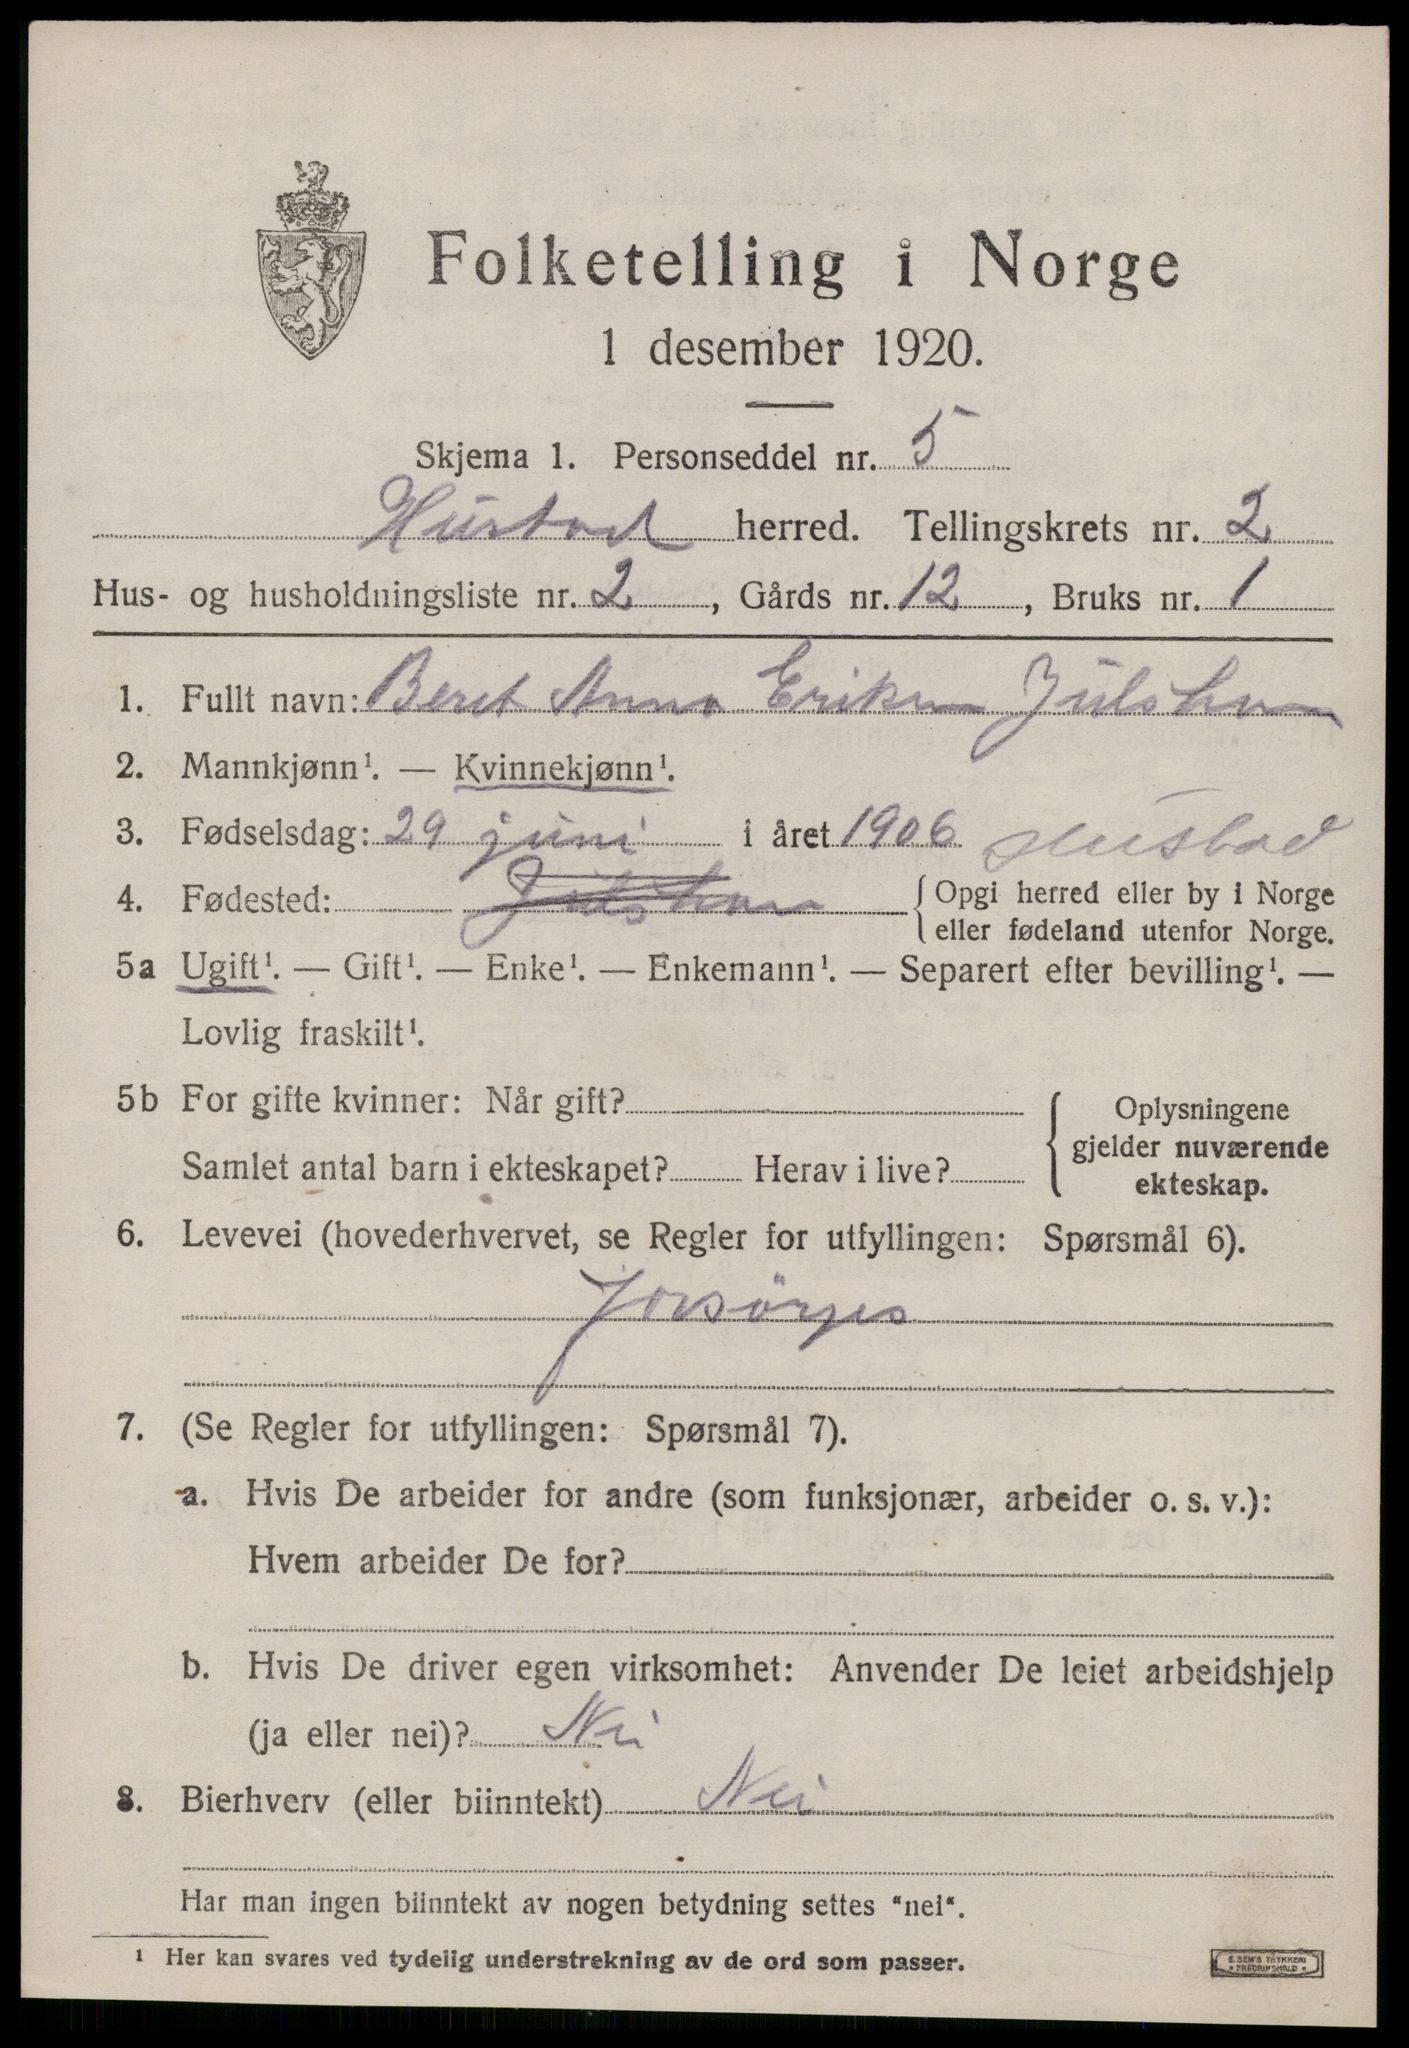 Folketelling i Norge
1 desember 1920.
Skjema 1. Personseddel nr. 5
Hustad herred. Tellingskrets nr. 2
Hus- og husholdningsliste nr. 2, Gårds nr. 12, Bruks nr. 1
1. Fullt navn: Beret Anna Eriksen Julsham
2. Mannkjønn¹. — Kvinnekjønn¹.
3. Fødselsdag: 29 juni i året 1906 Hustad
4. Fødested: Julsham { Opgi herred eller by i Norge
eller fødeland utenfor Norge.
5a Ugift¹. — Gift¹. — Enke¹. — Enkemann¹. — Separert efter bevilling¹. —
Lovlig fraskilt¹.
5b For gifte kvinner: Når gift? { Oplysningene
gjelder nuværende
Samlet antal barn i ekteskapet? Herav i live?
ekteskap.
6. Levevei (hovederhvervet, se Regler for utfyllingen: Spørsmål 6).
Forsörges
7. (Se Regler for utfyllingen: Spørsmål 7).
a. Hvis De arbeider for andre (som funksjonær, arbeider o. s. v.):
Hvem arbeider De for?
b. Hvis De driver egen virksomhet: Anvender De leiet arbeidshjelp
(ja eller nei)? Nei
8. Bierhverv (eller biinntekt) Nei
Har man ingen biinntekt av nogen betydning settes "nei".
¹ Her kan svares ved tydelig understrekning av de ord som passer.
E. SEM'S TRYKKERI
FREDRIKSHALD